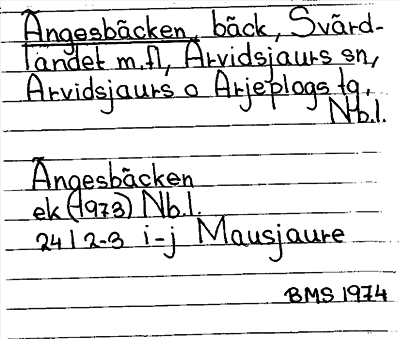 Ängesbäcken, bäck, Svärd-
tändet m.fl, Arvidsjaurs sn,
Arvidsjaurs o Arjeplogs tg,
Nb.l.
Ängesbäcken
ek (1973) Nb.l.
24 I 2-3 i-j Mausjaure
BMS 1974